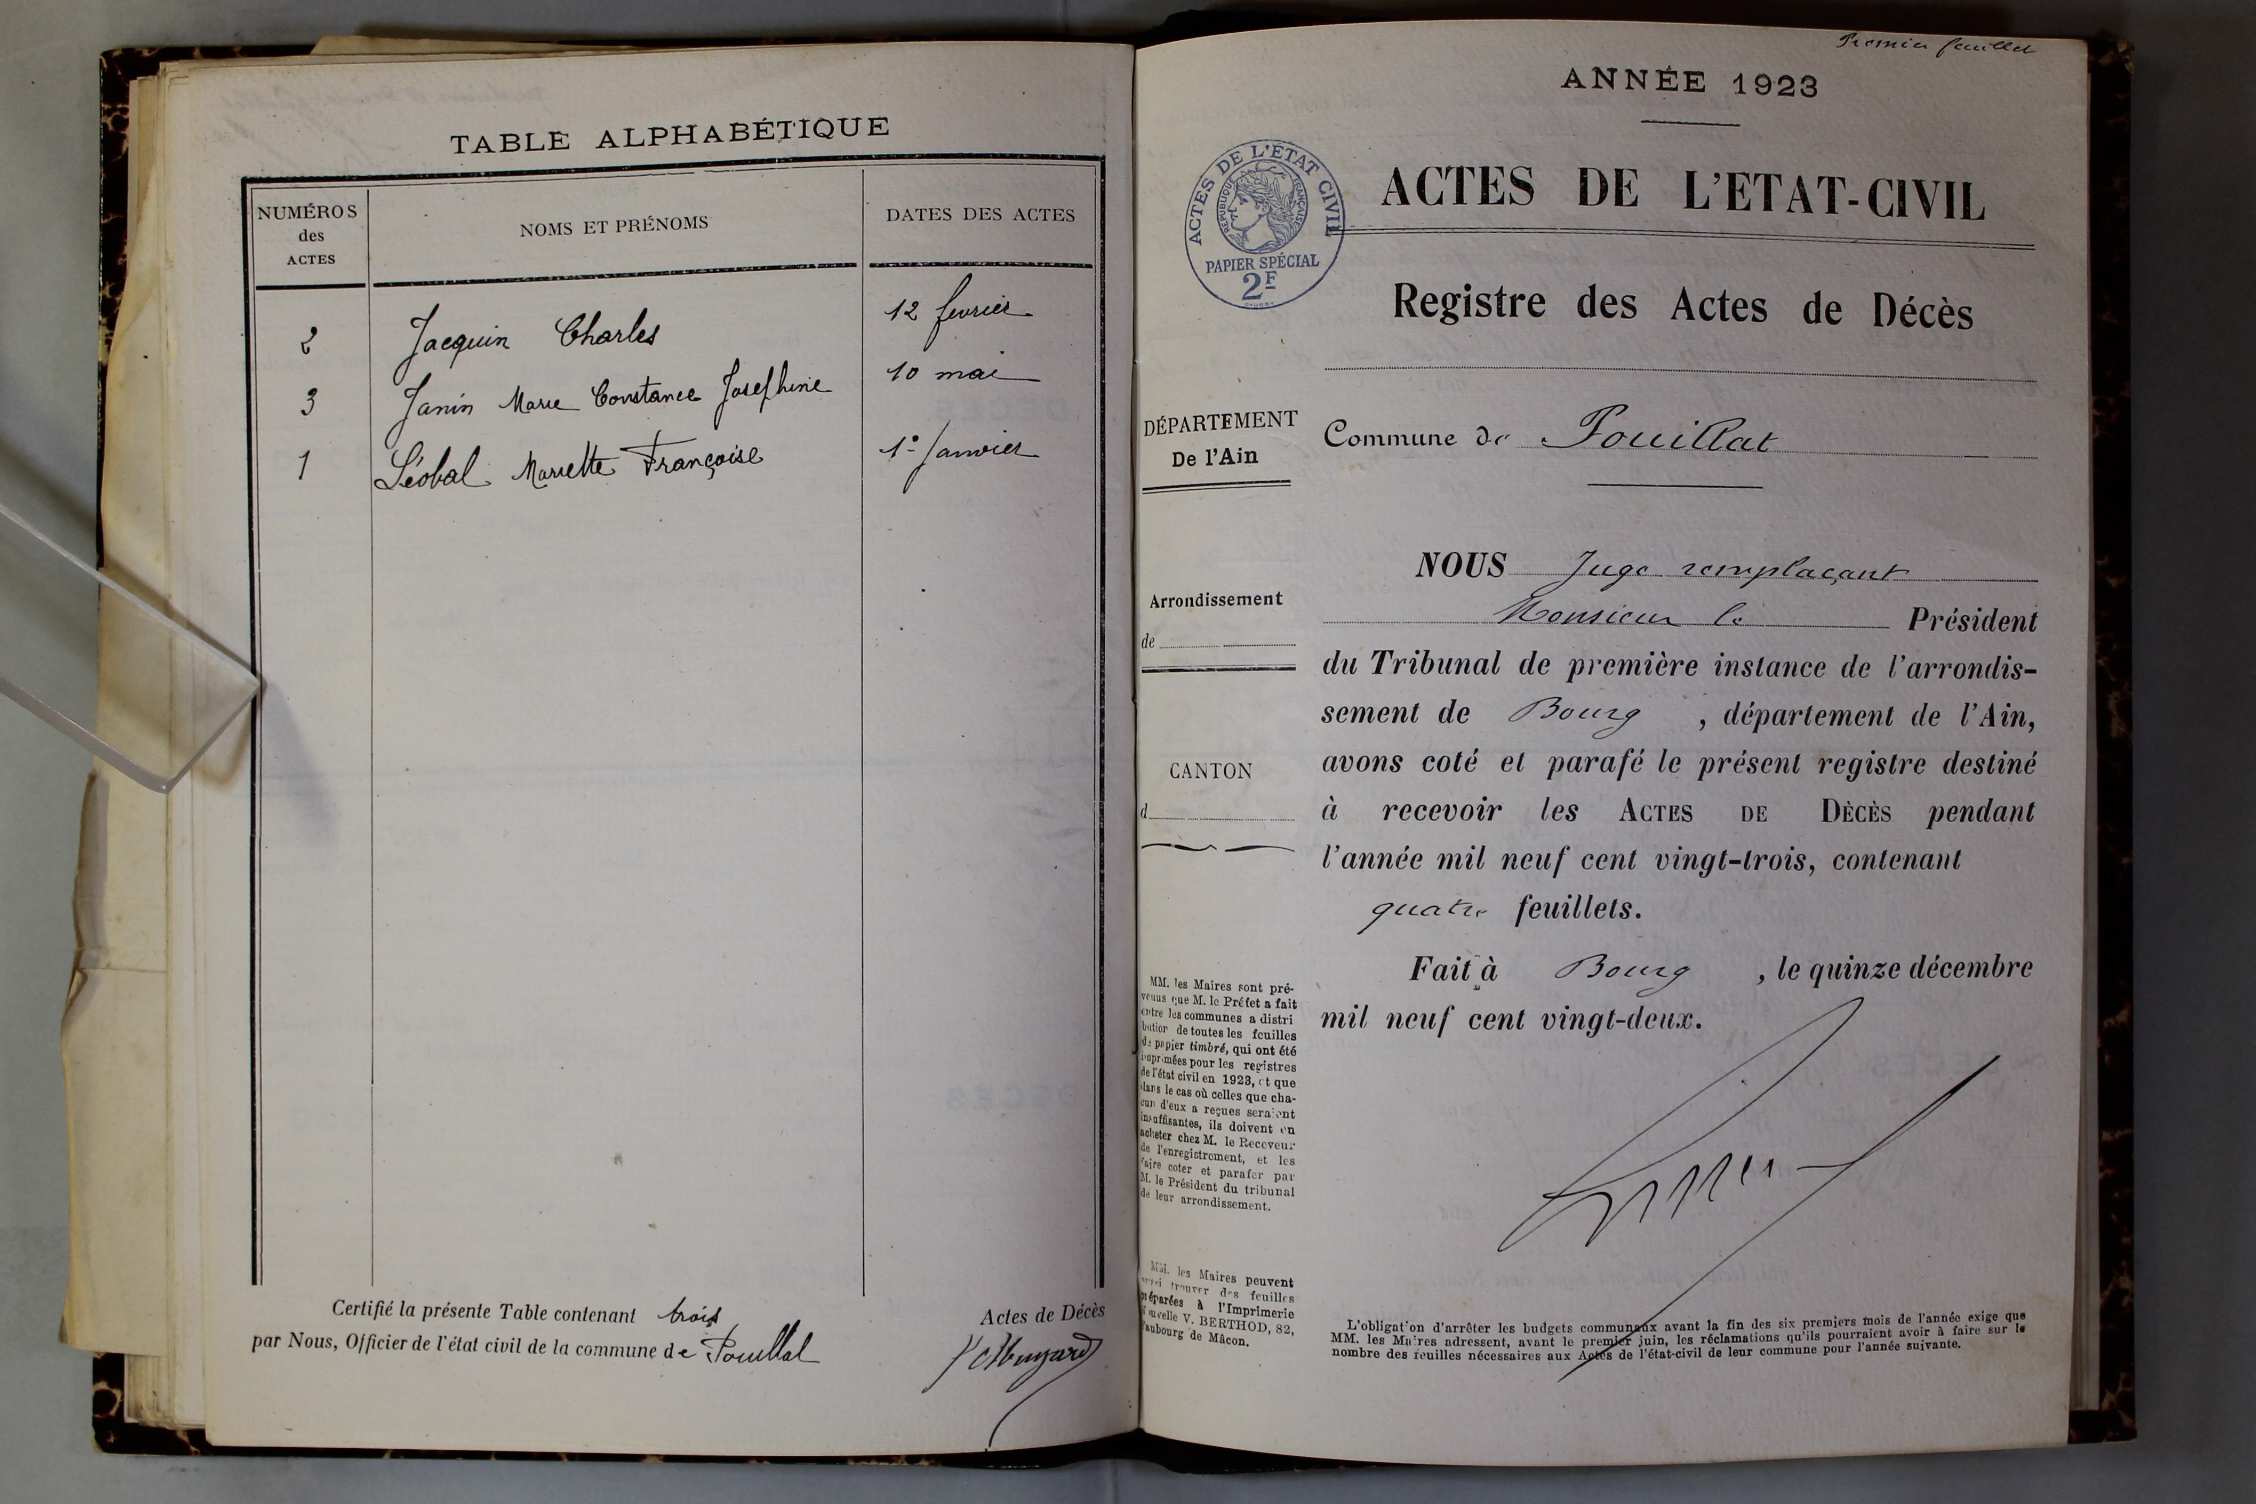 TABLE ALPHABÉTIQUE
NUMÉROS
des
ACTES
NOMS ET PRÉNOMS
DATES DES ACTES
2 Jacquin Charles 12 fevrier
3 Janin Marie Constance Josephine 10 mai
1 Léobal Mariette Françoise 1° Janvier
Certifié la présente Table contenant trois Actes de Décès
par Nous, Officier de l'état civil de la commune de Pouillat
Premier feuillet
ANNÉE 1923
ACTES DE L'ÉTAT CIVIL
RÉPUBLIQUE FRANÇAISE
PAPIER SPÉCIAL
2F
ACTES DE L'ETAT-CIVIL
Registre des Actes de Décès
DÉPARTEMENT
De l'Ain
Commune de Pouillat
Arrondissement
de
CANTON
d
NOUS Juge remplaçant
Monsieur le Président
du Tribunal de première instance de l'arrondis-
sement de Bourg, département de l'Ain,
avons coté et parafé le présent registre destiné
à recevoir les ACTES DE DÈCÈS pendant
l'année mil neuf cent vingt-trois, contenant
quatre feuillets.
Fait à Bourg, le quinze décembre
mil neuf cent vingt-deux.
MM. les Maires sont pré-
venus que M. le Préfet a fait
entre les communes a distri
bution de toutes les feuilles
de papier timbré, qui ont été
imprimées pour les registres
de l'état civil en 1923, et que
dans le cas où celles que cha-
cun d'eux a reçues seraient
insuffisantes, ils doivent en
acheter chez M. le Receveur
de l'enregistrement, et les
faire coter et parafer par
M. le Président du tribunal
de leur arrondissement.
MM. les Maires peuvent
aussi trouver des feuilles
préparées à l'Imprimerie
Nouvelle V. BERTHOD, 82,
faubourg de Mâcon.
L'obligation d'arrêter les budgets communaux avant la fin des six premiers mois de l'année exige que
MM. les Maires adressent, avant le premier juin, les réclamations qu'ils pourraient avoir à faire sur le
nombre des feuilles nécessaires aux Actes de l'état-civil de leur commune pour l'année suivante.